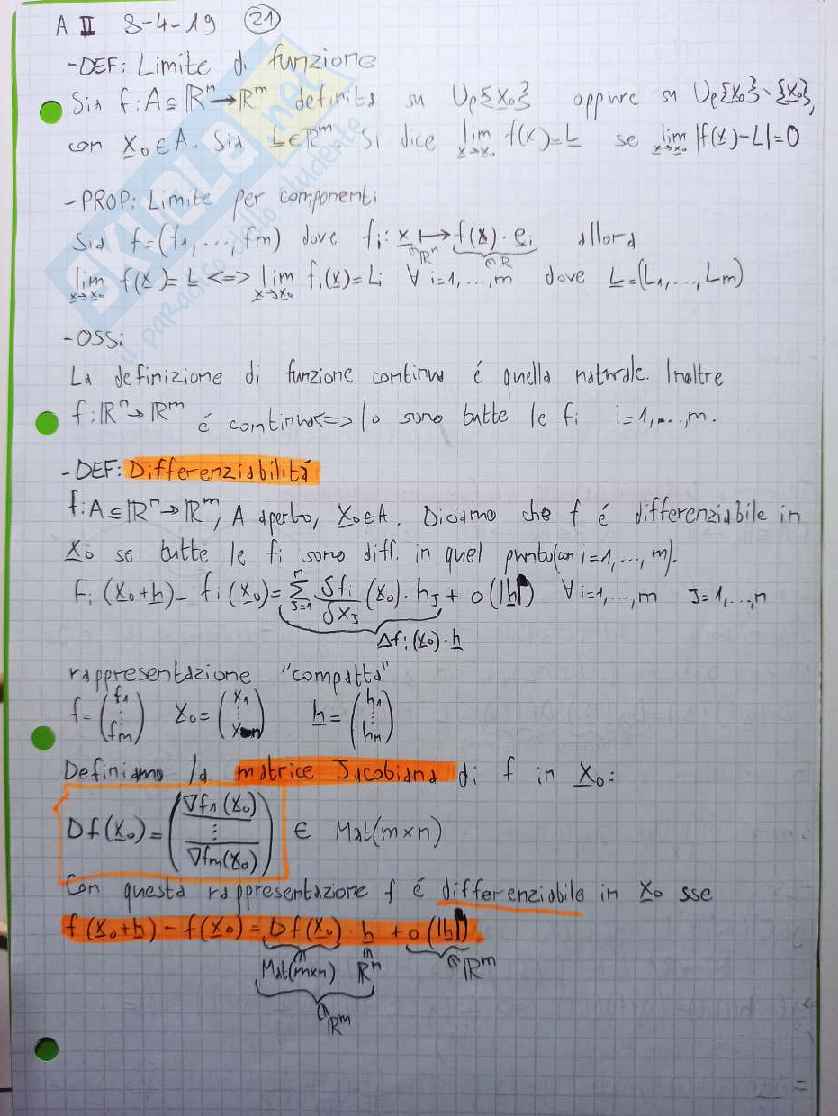 A II 8-4-19 (21)
-DEF: Limite di funzione
Sia f: A ⊆ ℝⁿ → ℝᵐ definita su Uρ{x̲₀} oppure su Uρ{x̲₀}∖{x̲₀},
con x̲₀ ∈ A. Sia L̲ ∈ ℝᵐ. Si dice lim_{x̲→x̲₀} f(x̲) = L̲ se lim_{x̲→x̲₀} |f(x̲) - L̲| = 0
-PROP: Limite per componenti
Sia f = (f₁, ..., fm) dove fᵢ: x̲ ↦ f(x̲) · e̲ᵢ allora
∈ ℝⁿ ∈ ℝ
lim_{x̲→x̲₀} f(x̲) = L̲ <=> lim_{x̲→x̲₀} fᵢ(x̲) = Lᵢ ∀ i=1, ..., m dove L̲ = (L₁, ..., Lm)
-OSS:
La definizione di funzione continua é quella naturale. Inoltre
f: ℝⁿ → ℝᵐ é continua <=> lo sono tutte le fi i=1, ..., m.
-DEF: Differenziabilitá
f: A ⊆ ℝⁿ → ℝᵐ, A aperto, x̲₀ ∈ A. Diciamo che f é differenziabile in
x̲₀ se tutte le fi sono diff. in quel punto (con i=1, ..., m).
fᵢ(x̲₀+h̲) - fᵢ(x̲₀) = Σ_{J=1}^{n} δfᵢ/δx_J (x̲₀) · h_J + o(|h̲|) ∀ i=1, ..., m J=1, ..., n
Δfᵢ(x̲₀) · h̲
rappresentazione "compatta"
f = (f₁ ⋮ fm) x̲₀ = (x₁ ⋮ xn) h̲ = (h₁ ⋮ hn)
Definiamo la matrice Jacobiana di f in x̲₀:
Df(x̲₀) = (∇f₁(x̲₀) ⋮ ∇fm(x̲₀)) ∈ Mat(m×n)
Con questa rappresentazione f é differenziabile in x̲₀ sse
f(x̲₀+h̲) - f(x̲₀) = Df(x̲₀) · h̲ + o(|h̲|)
∈ Mat(m×n) ∈ ℝⁿ ∈ ℝᵐ
∈ ℝᵐ
SKUOLA.net
il paradiso dello studente